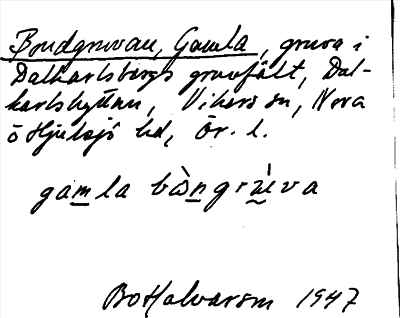 Bondgruvan, Gamla, gruva i
Dalkarlsbergs gruvfält, Dal-
karlshyttan, Vikers sn, Nora
o Hjulsjö hd, Ör. l.
gamla bòngrù̀va
Bo Halvarsson 1947